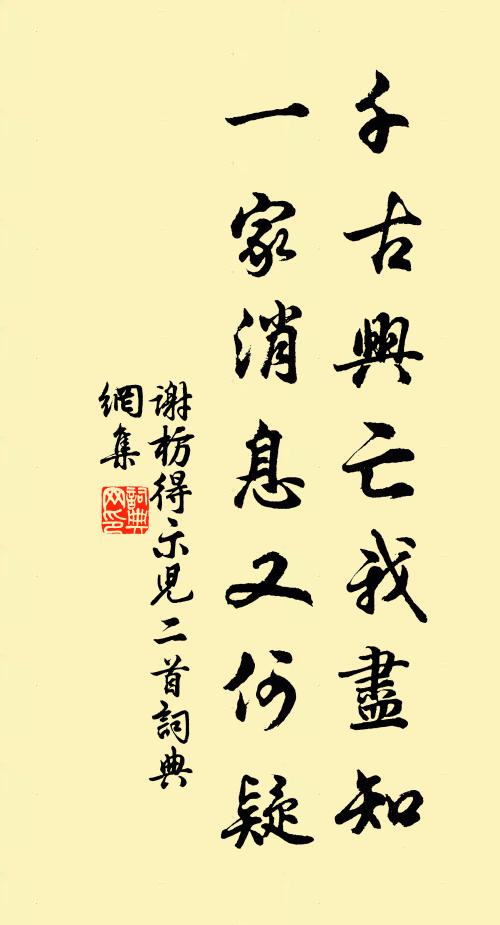 千古興亡我盡知
一家消息又何疑
谢枋得示児二首詞典
網集
詞典
网印